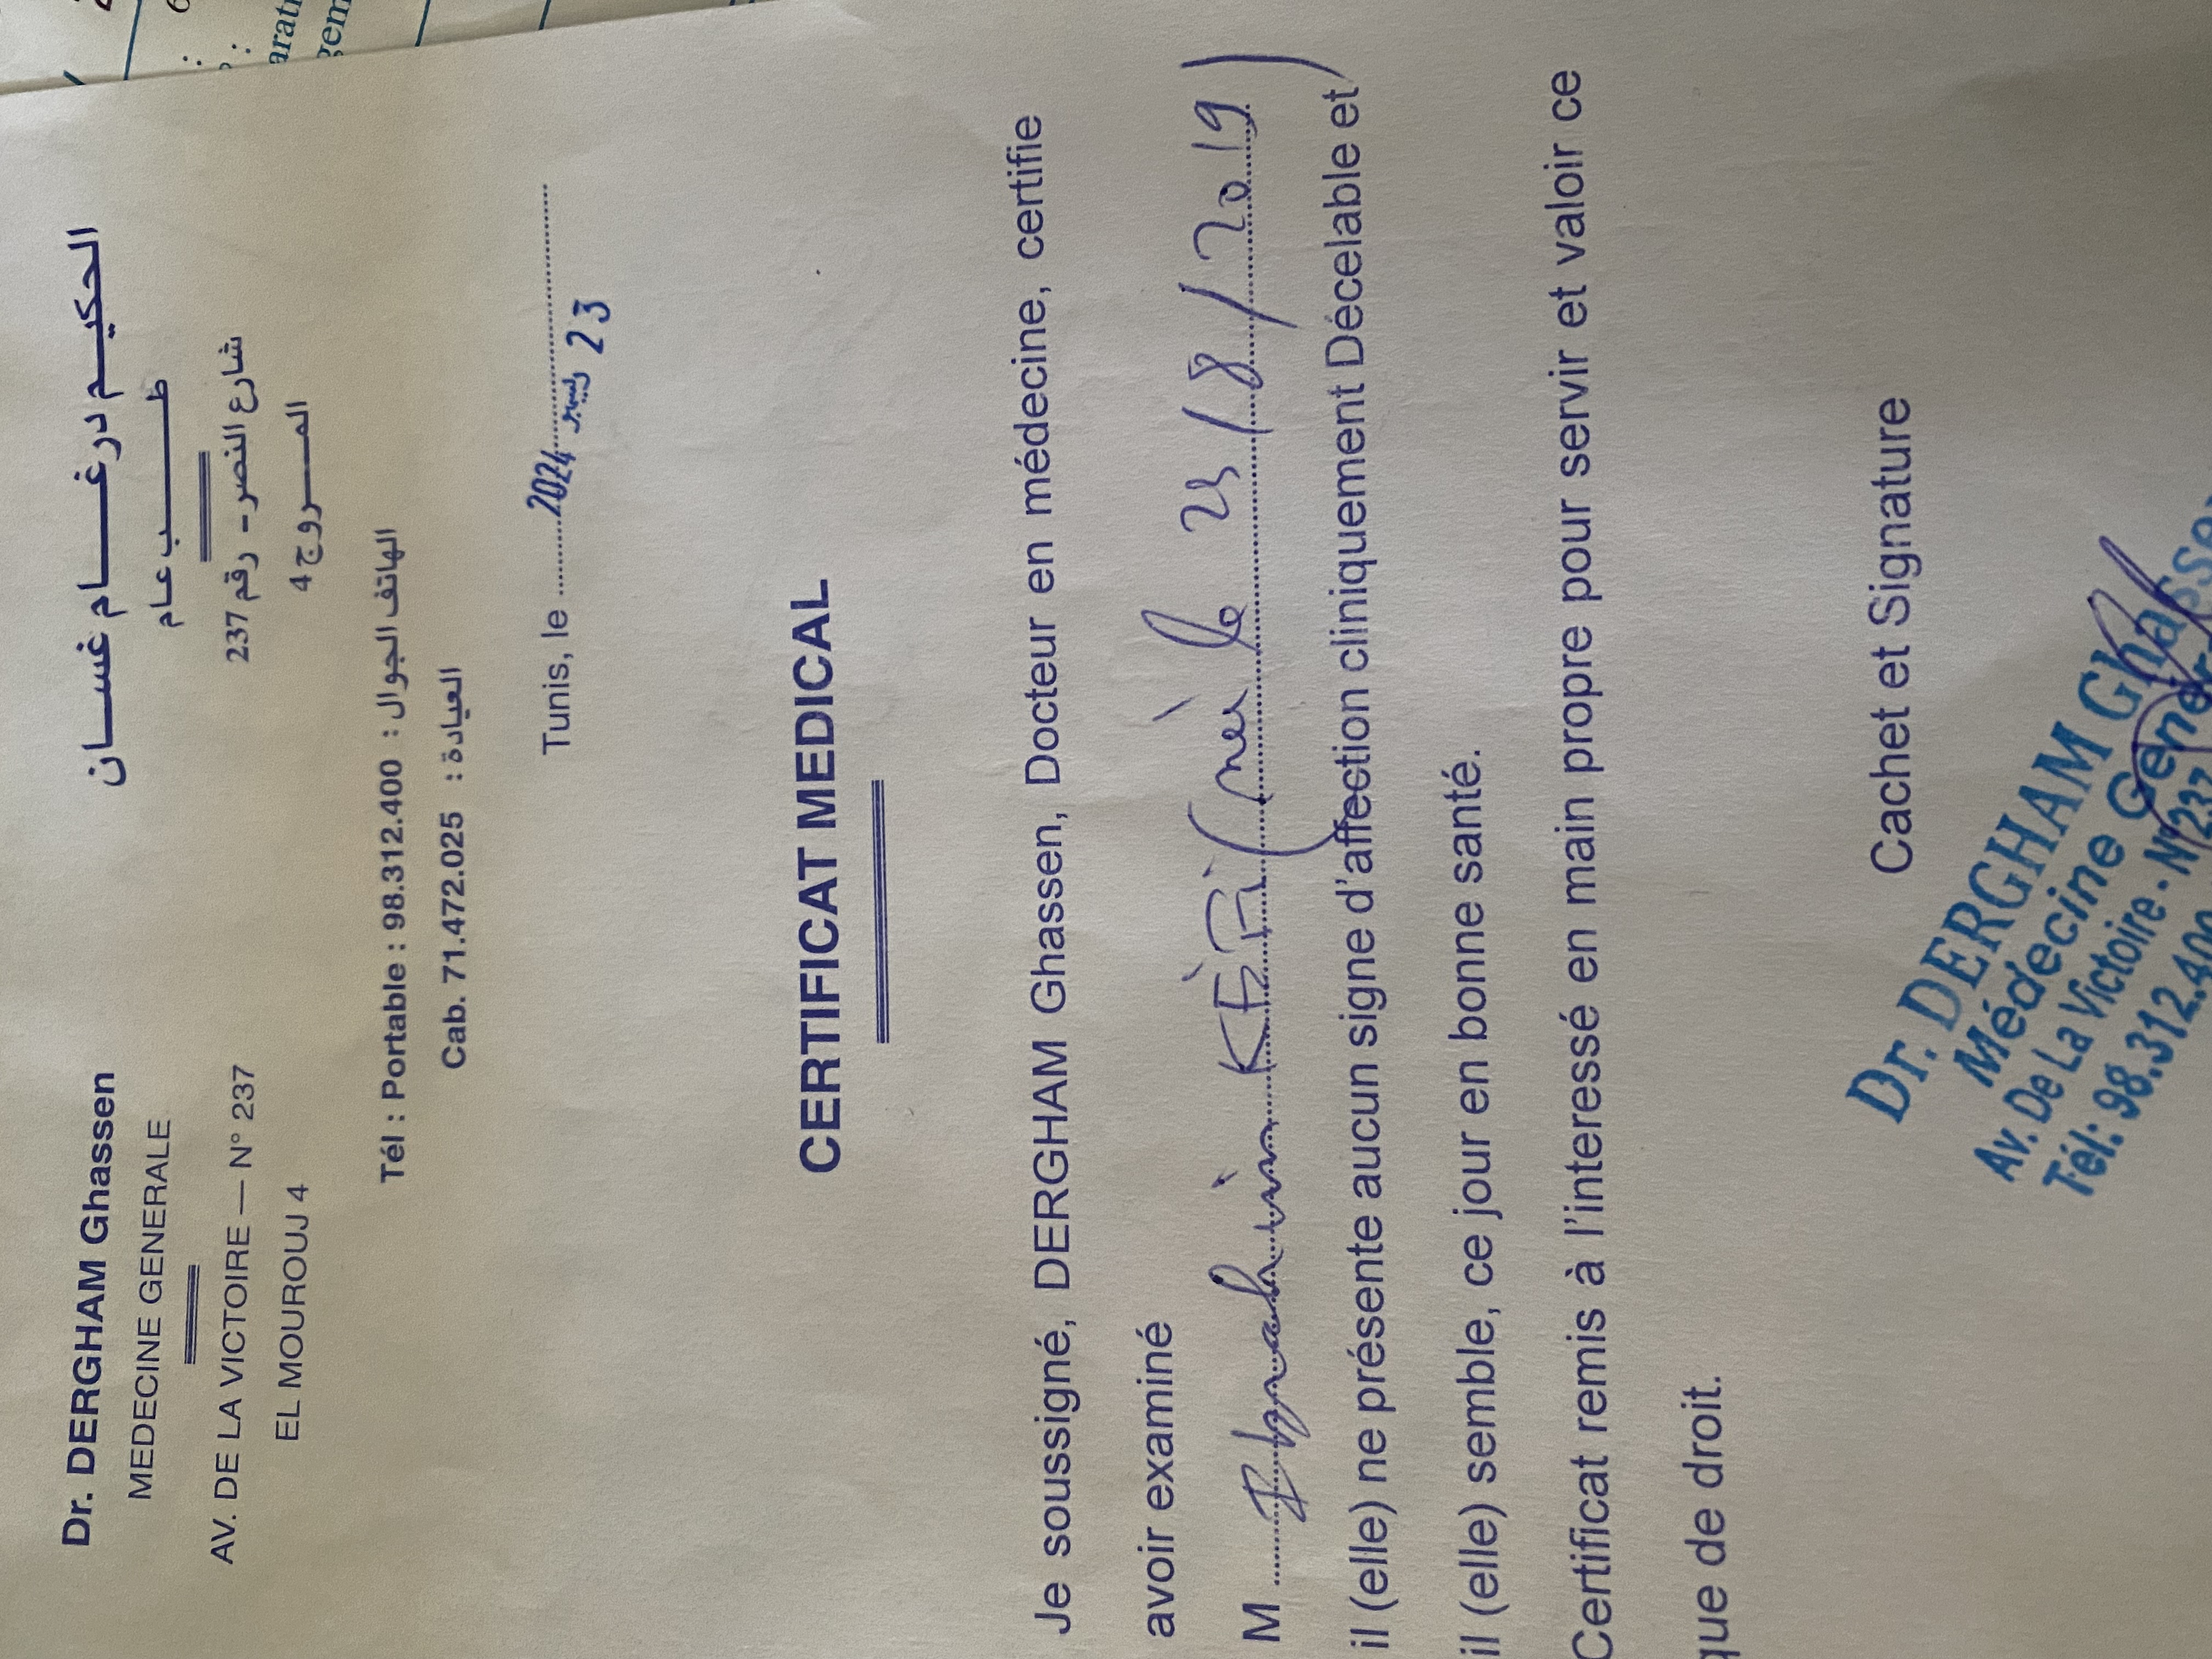 Dr. DERGHAM Ghassen
MEDECINE GENERALE
AV. DE LA VICTOIRE — N° 237
EL MOUROUJ 4
الحكيم درغام غسان
طب عام
شارع النصر - رقم 237
المروج 4
Tél : Portable : 98.312.400 : الهاتف الجوال
Cab. 71.472.025 : العيادة
Tunis, le 2024 ديسمبر 23
CERTIFICAT MEDICAL
Je soussigné, DERGHAM Ghassen, Docteur en médecine, certifie
avoir examiné
M KEFI (né le 25/8/2019)
il (elle) ne présente aucun signe d'affection cliniquement Décelable et
il (elle) semble, ce jour en bonne santé.
Certificat remis à l'interessé en main propre pour servir et valoir ce
que de droit.
Cachet et Signature
Dr. DERGHAM Ghassen
Médecine
Av. De La Victoire - N° 237
Tél: 98.312.400